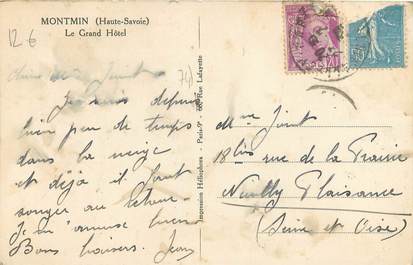 MONTMIN (Haute-Savoie)
Le Grand Hôtel
12 €
74)
Je suis depuis
bien peu de temps
dans la neige
et déjà il faut
songer au retour.
Je m'amuse bien
Bons baisers. Jean
Impression Héliophore - Paris-9e - 66, Rue Lafayette
Mme Joint
18bis rue de la Prairie
Neuilly Plaisance
(Seine et Oise)